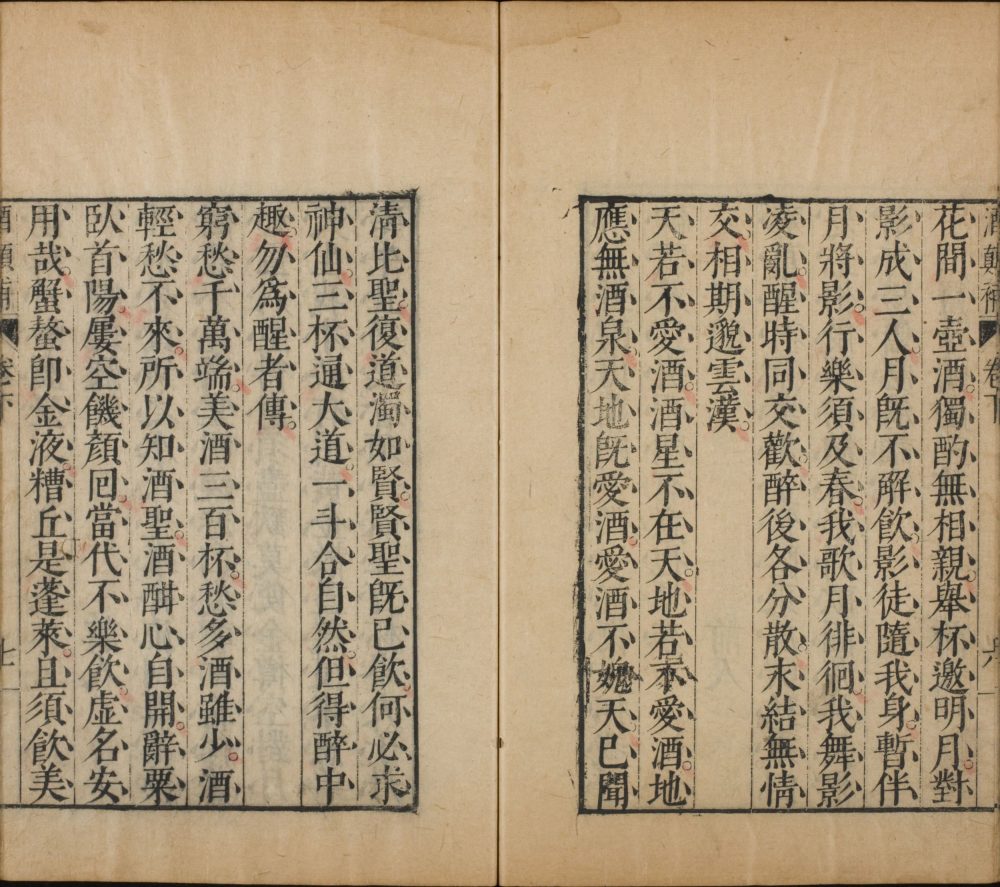 酒顛補 卷下 六
花間一壺酒獨酌無相親舉杯邀明月對
影成三人月旣不解飲影徒隨我身暫伴
月將影行樂須及春我歌月徘徊我舞影
凌亂醒時同交歡醉後各分散永結無情
交相期邈雲漢
天若不愛酒酒星不在天地若不愛酒地
應無酒泉天地旣愛酒愛酒不媿天已聞
淸比聖復道濁如賢賢聖旣已飲何必求
神仙三杯通大道一斗合自然但得醉中
趣勿爲醒者傳
窮愁千萬端美酒三百杯愁多酒雖少酒
輕愁不來所以知酒聖酒酣心自開辭粟
臥首陽屢空饑顏回當代不樂飲虛名安
用哉蟹螯卽金液糟丘是蓬萊且須飲美
酒顛補 卷之下 七